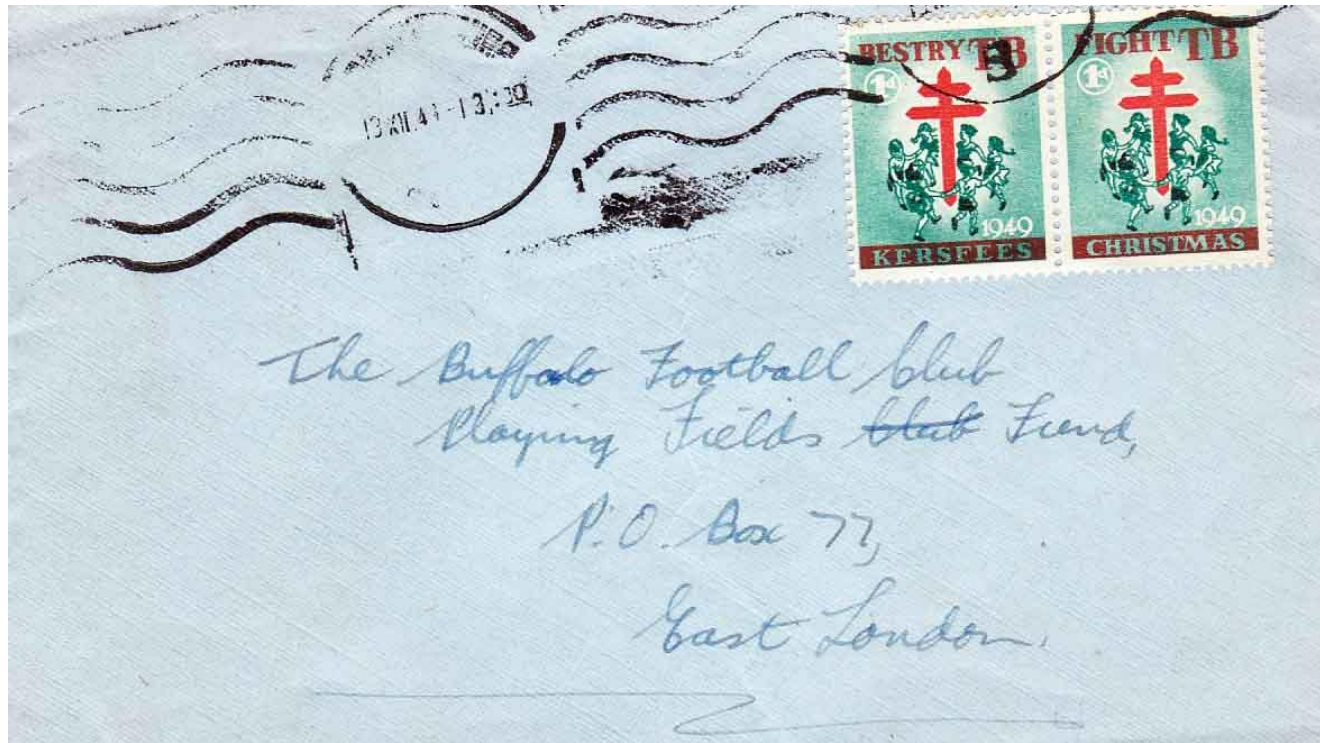 13 XII.49-13:30
BESTRY TB
1d
1949
KERSFEES
FIGHT TB
1d
1949
CHRISTMAS
The Buffalo Football Club
Playing Fields Club Fund,
P.O. Box 77,
East London.